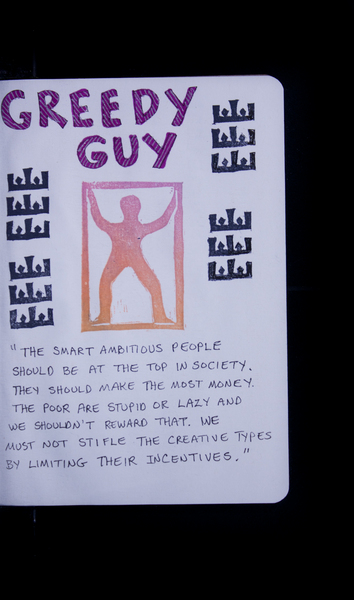 GREEDY
GUY
"THE SMART AMBITIOUS PEOPLE
SHOULD BE AT THE TOP IN SOCIETY.
THEY SHOULD MAKE THE MOST MONEY.
THE POOR ARE STUPID OR LAZY AND
WE SHOULDN'T REWARD THAT. WE
MUST NOT STIFLE THE CREATIVE TYPES
BY LIMITING THEIR INCENTIVES."